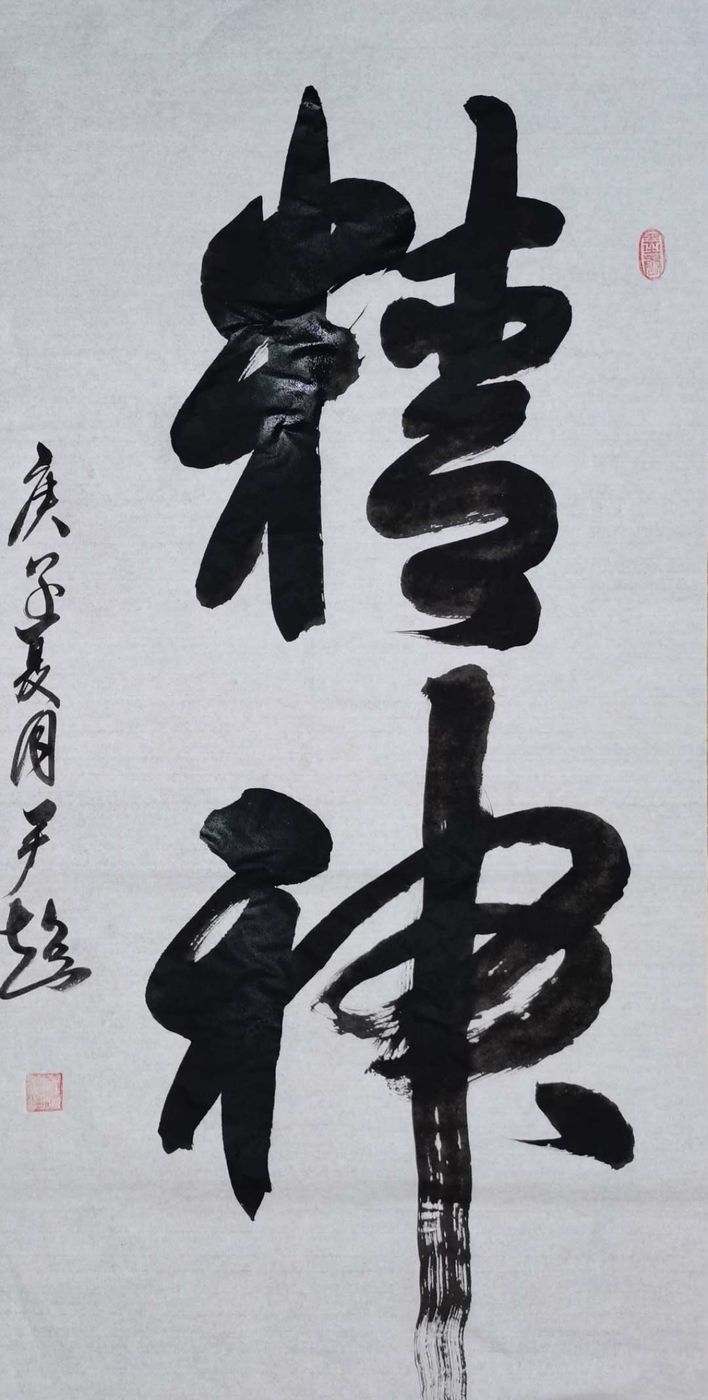 精神
庚子夏月尹